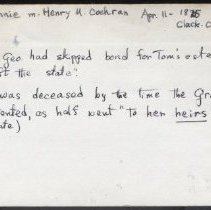 nnie m. Henry M. Cochran Apr. 11 - 18
Clack. C
Geo had skipped bond for Tom's este
st the state".
was deceased by the time the Gra
ented, as half went "To her heirs
te)